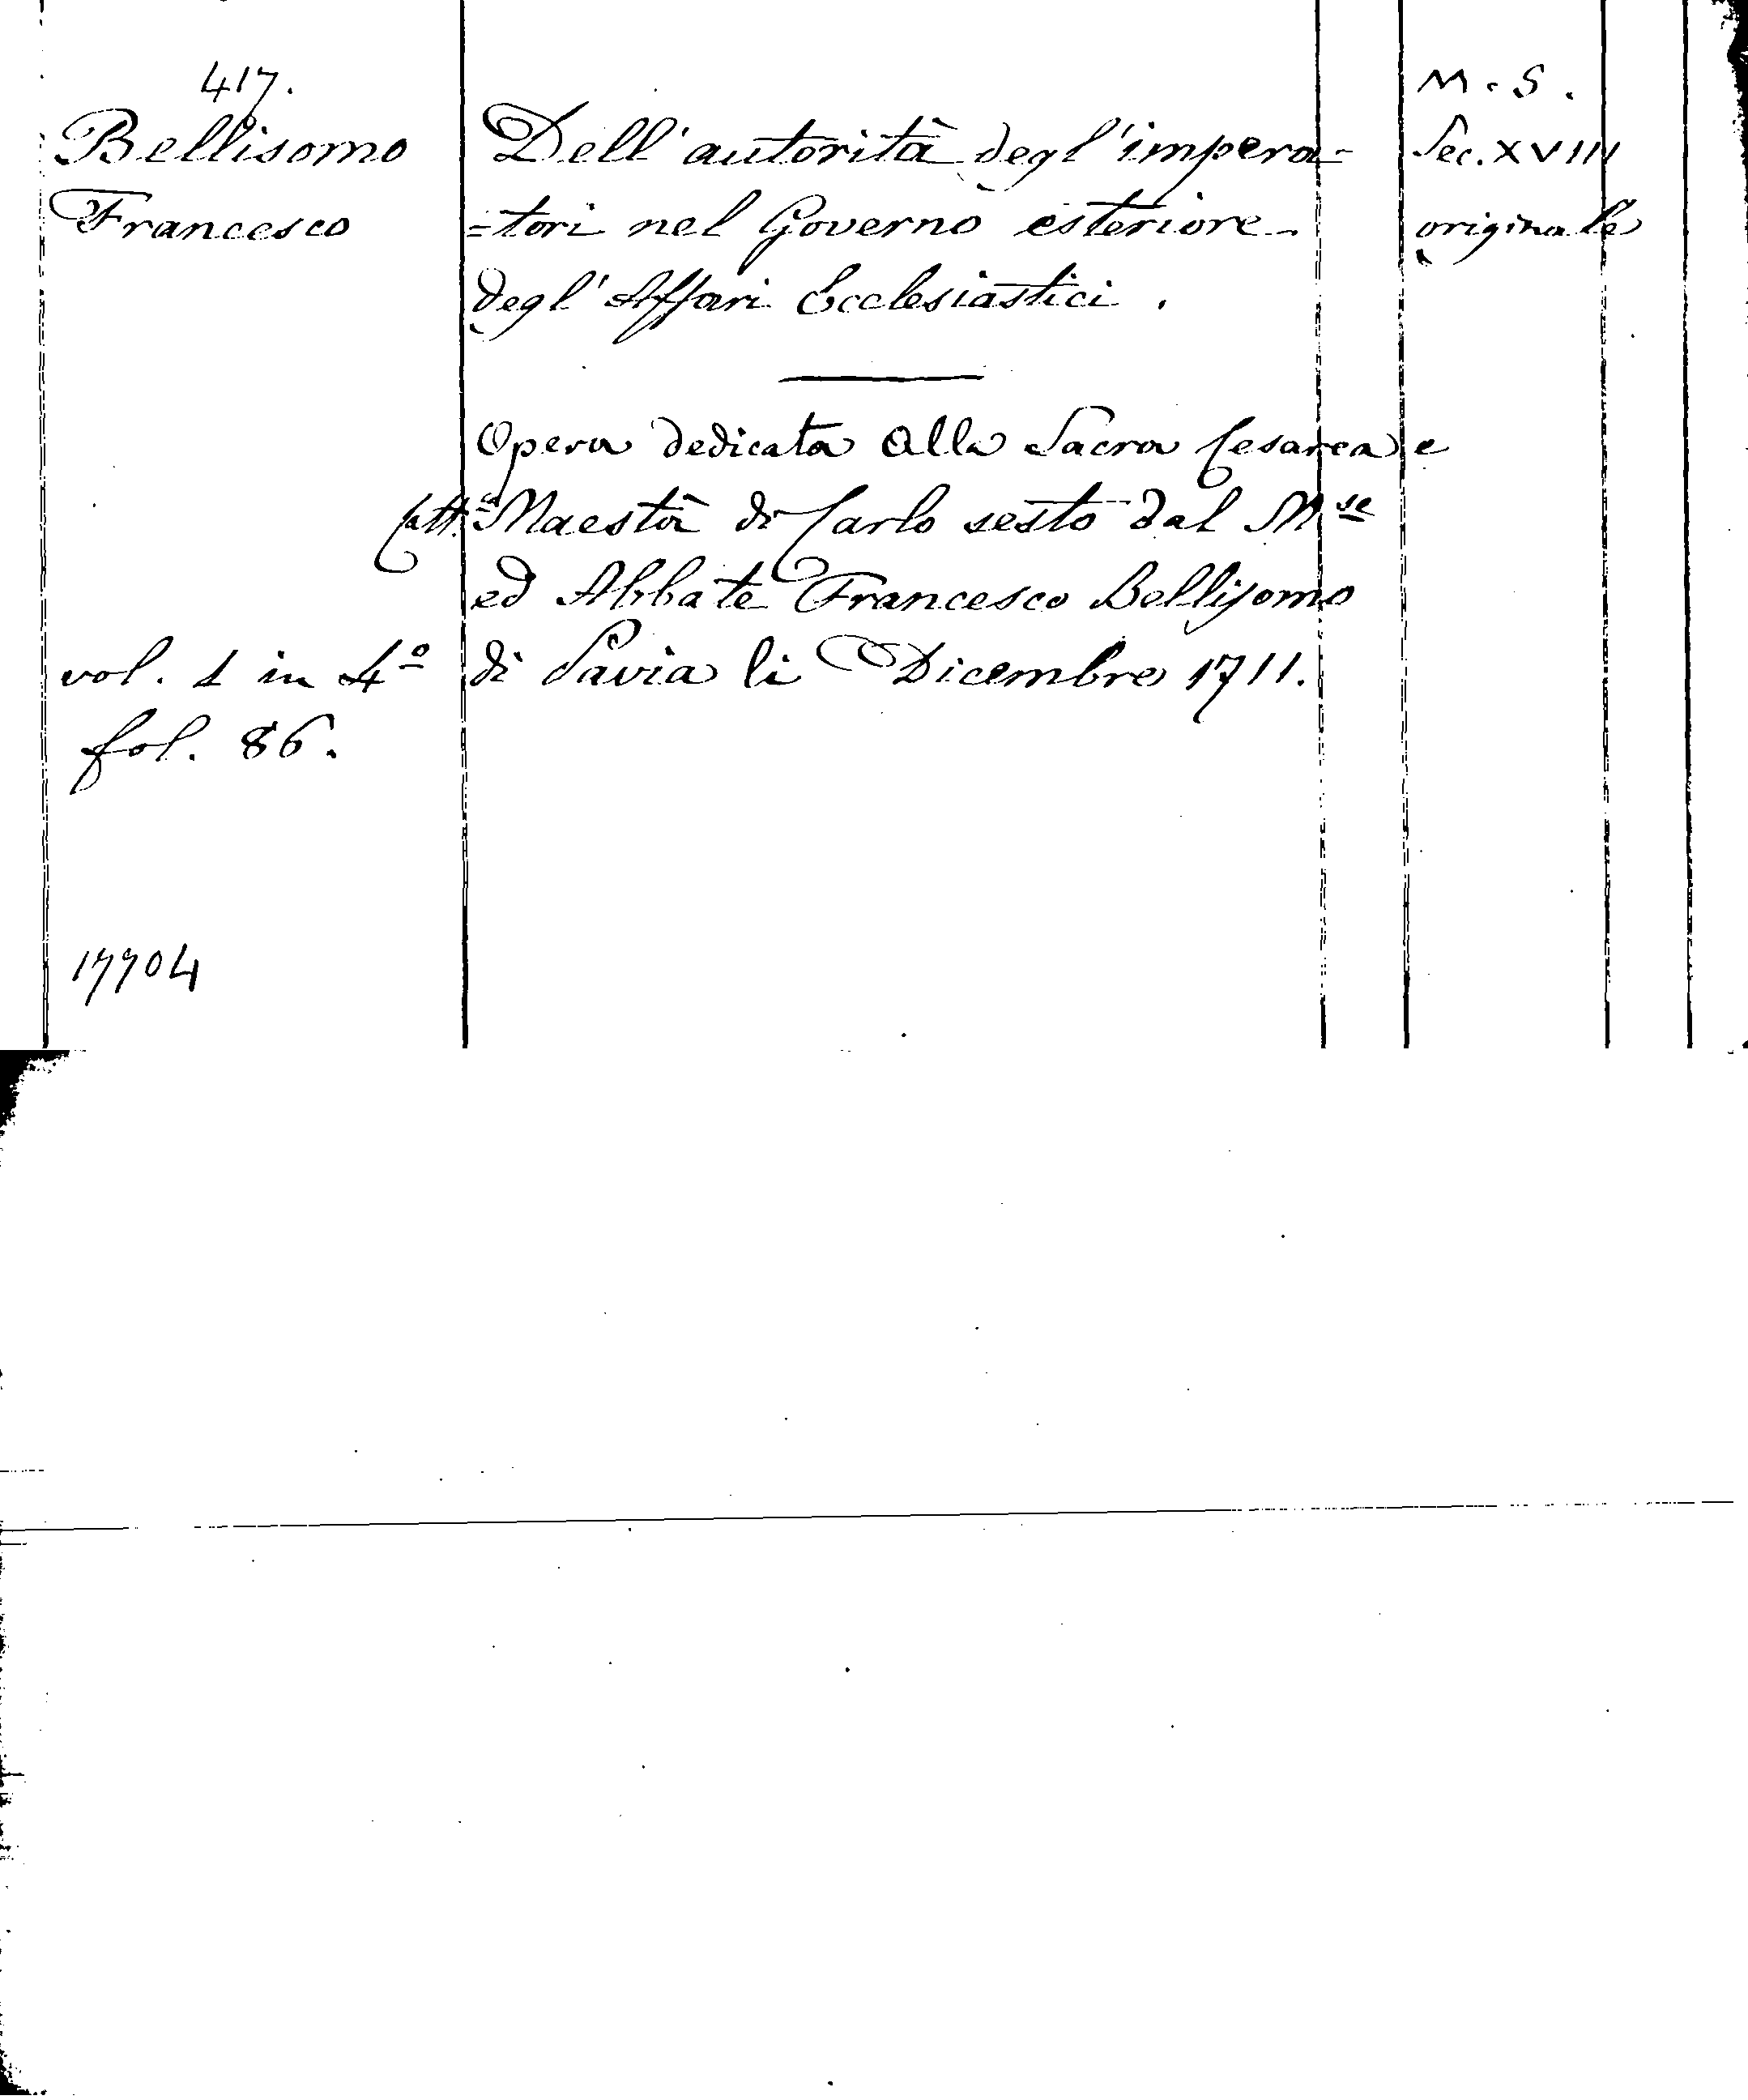 417.
Bellisomo
Francesco
Dell' autorità degl' impera=
=tori nel Governo esteriore
degl' Affari Ecclesiastici.
M. S.
Sec. XVIII
originale
Opera dedicata alla Sacra Cesarea e
Catt.ª Maestà di Carlo sesto dal M.se
ed Abbate Francesco Bellisomo
di Pavia li Dicembre 1711.
vol. 1 in 4º
fol. 86.
17704